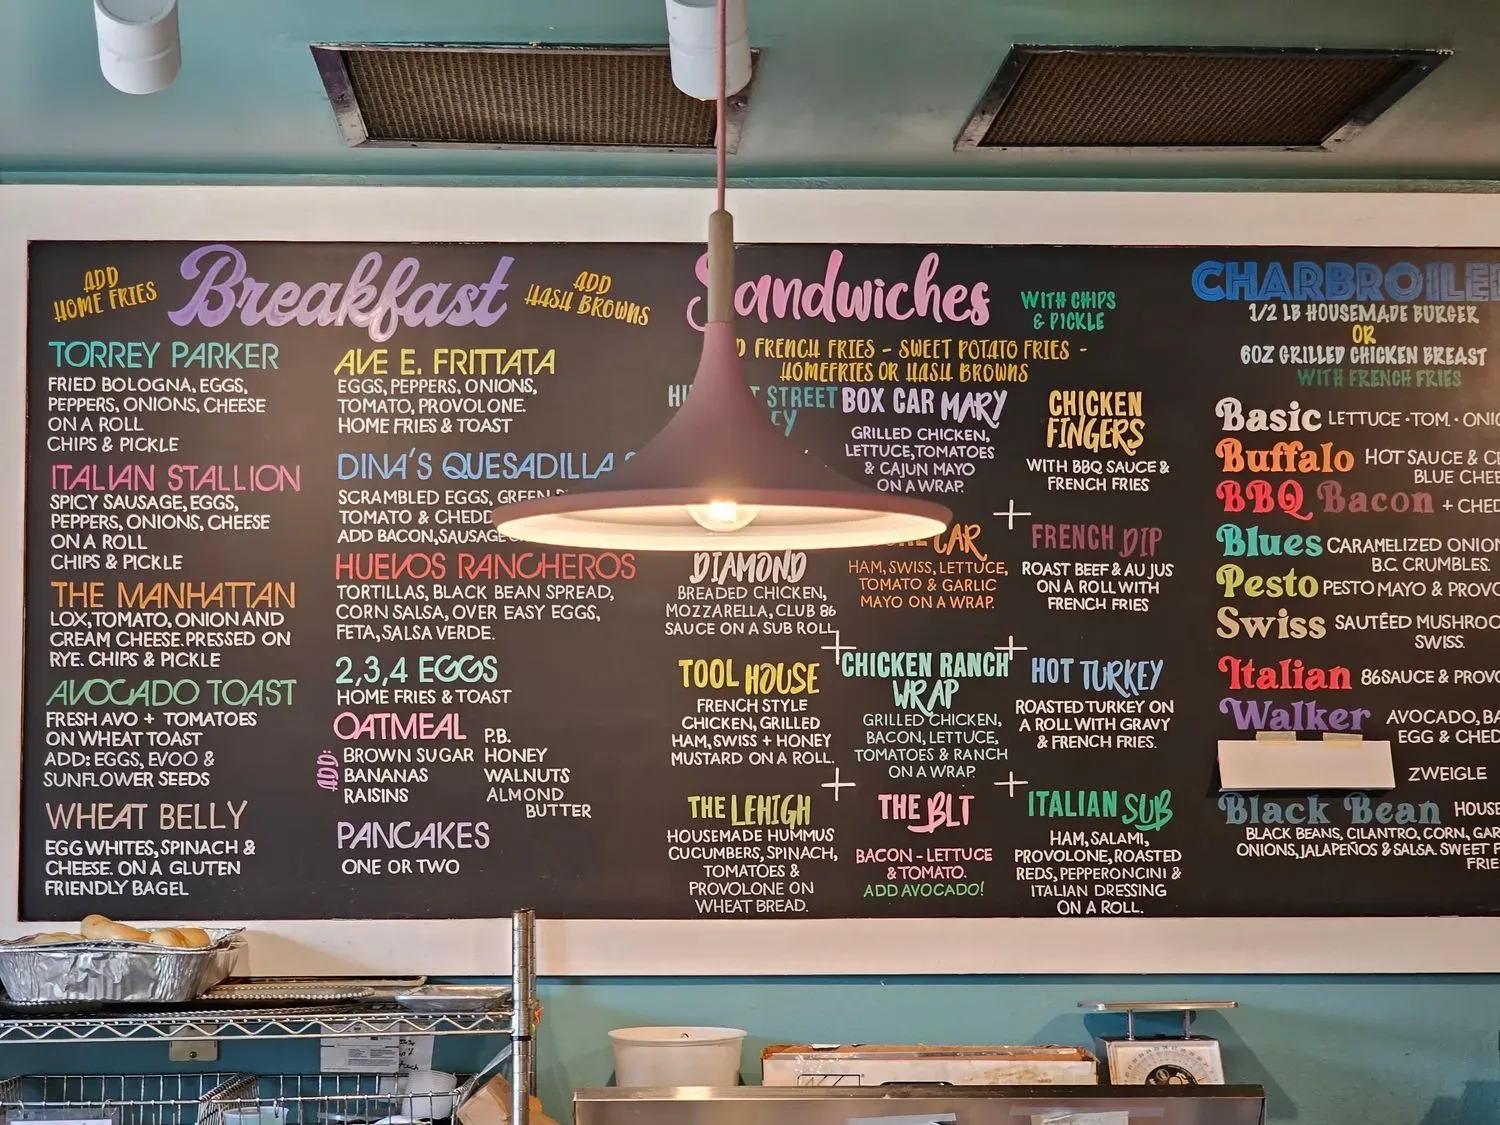 ADD
HOME FRIES
Breakfast
ADD
HASH BROWNS
TORREY PARKER
FRIED BOLOGNA, EGGS,
PEPPERS, ONIONS, CHEESE
ON A ROLL
CHIPS & PICKLE
ITALIAN STALLION
SPICY SAUSAGE, EGGS,
PEPPERS, ONIONS, CHEESE
ON A ROLL
CHIPS & PICKLE
THE MANHATTAN
LOX, TOMATO, ONION AND
CREAM CHEESE. PRESSED ON
RYE. CHIPS & PICKLE
AVOCADO TOAST
FRESH AVO + TOMATOES
ON WHEAT TOAST
ADD: EGGS, EVOO &
SUNFLOWER SEEDS
WHEAT BELLY
EGG WHITES, SPINACH &
CHEESE. ON A GLUTEN
FRIENDLY BAGEL
AVE E. FRITTATA
EGGS, PEPPERS, ONIONS,
TOMATO, PROVOLONE.
HOME FRIES & TOAST
DINA'S QUESADILLA
SCRAMBLED EGGS, GREEN
TOMATO & CHEDD
ADD BACON, SAUSAGE
HUEVOS RANCHEROS
TORTILLAS, BLACK BEAN SPREAD,
CORN SALSA, OVER EASY EGGS,
FETA, SALSA VERDE.
2,3,4 EGGS
HOME FRIES & TOAST
OATMEAL
ADD:
BROWN SUGAR
BANANAS
RAISINS
P.B.
HONEY
WALNUTS
ALMOND
BUTTER
PANCAKES
ONE OR TWO
Sandwiches
WITH CHIPS
& PICKLE
D FRENCH FRIES - SWEET POTATO FRIES -
HOMEFRIES OR HASH BROWNS
STREET
EY
DIAMOND
BREADED CHICKEN,
MOZZARELLA, CLUB 86
SAUCE ON A SUB ROLL
TOOL HOUSE
FRENCH STYLE
CHICKEN, GRILLED
HAM, SWISS + HONEY
MUSTARD ON A ROLL.
THE LEHIGH
HOUSEMADE HUMMUS
CUCUMBERS, SPINACH,
TOMATOES &
PROVOLONE ON
WHEAT BREAD.
BOX CAR MARY
GRILLED CHICKEN,
LETTUCE, TOMATOES
& CAJUN MAYO
ON A WRAP.
CAR
HAM, SWISS, LETTUCE,
TOMATO & GARLIC
MAYO ON A WRAP.
CHICKEN RANCH
WRAP
GRILLED CHICKEN,
BACON, LETTUCE,
TOMATOES & RANCH
ON A WRAP.
THE BLT
BACON - LETTUCE
& TOMATO.
ADD AVOCADO!
CHICKEN
FINGERS
WITH BBQ SAUCE &
FRENCH FRIES
FRENCH DIP
ROAST BEEF & AU JUS
ON A ROLL WITH
FRENCH FRIES
HOT TURKEY
ROASTED TURKEY ON
A ROLL WITH GRAVY
& FRENCH FRIES.
ITALIAN SUB
HAM, SALAMI,
PROVOLONE, ROASTED
REDS, PEPPERONCINI &
ITALIAN DRESSING
ON A ROLL.
CHARBROILED
1/2 LB HOUSEMADE BURGER
OR
6OZ GRILLED CHICKEN BREAST
WITH FRENCH FRIES
Basic LETTUCE · TOM. · ONIO
Buffalo HOT SAUCE & C
BLUE CHEE
BBQ Bacon + CHED
Blues CARAMELIZED ONION
B.C. CRUMBLES.
Pesto PESTO MAYO & PROVO
Swiss SAUTÉED MUSHROO
SWISS.
Italian 86 SAUCE & PROVO
Walker AVOCADO, BA
EGG & CHED
ZWEIGLE
Black Bean HOUSE
BLACK BEANS, CILANTRO, CORN, GAR
ONIONS, JALAPEÑOS & SALSA. SWEET P
FRIE